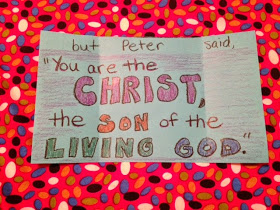 but Peter said,
"You are the
CHRIST,
the SON of the
LIVING GOD."